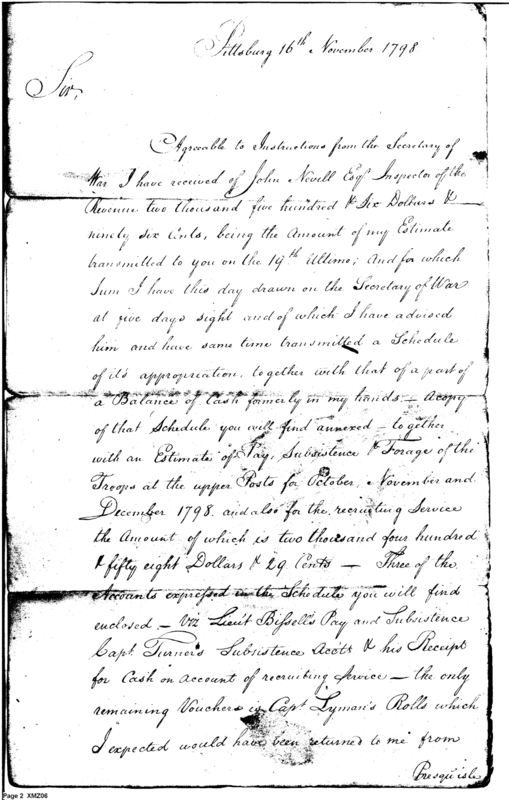 Pittsburg 16th November 1798
Sir,
Agreeable to Instructions from the Secretary of
War I have received of John Nevill Esqr Inspector of the
Revenue two thousand five hundred & Six Dollars &
ninety six Cents, being the Amount of my Estimate
transmitted to you on the 19th Ultimo; And for which
Sum I have this day drawn on the Secretary of War
at five days sight and of which I have advised
him and have same time transmitted a Schedule
of it's appropriation, together with that of a part of
a Balance of Cash formerly in my hands — A copy
of that Schedule you will find annexed — together
with an Estimate of Pay, Subsistence & Forage of the
Troops at the upper Posts for October, November and
December 1798. and also for the recruiting Service
the Amount of which is two thousand four hundred
& fifty eight Dollars & 29 Cents — Three of the
Accounts expressed in the Schedule you will find
enclosed — Viz Lieut Bissell's Pay and Subsistence
Capt. Turner's Subsistence Accots & his Receipt
for Cash on Account of recruiting Service — the only
remaining Vouchers is Capt Lyman's Rolls which
I expected would have been returned to me from
Presqu'isle
Page 2 XMZ06